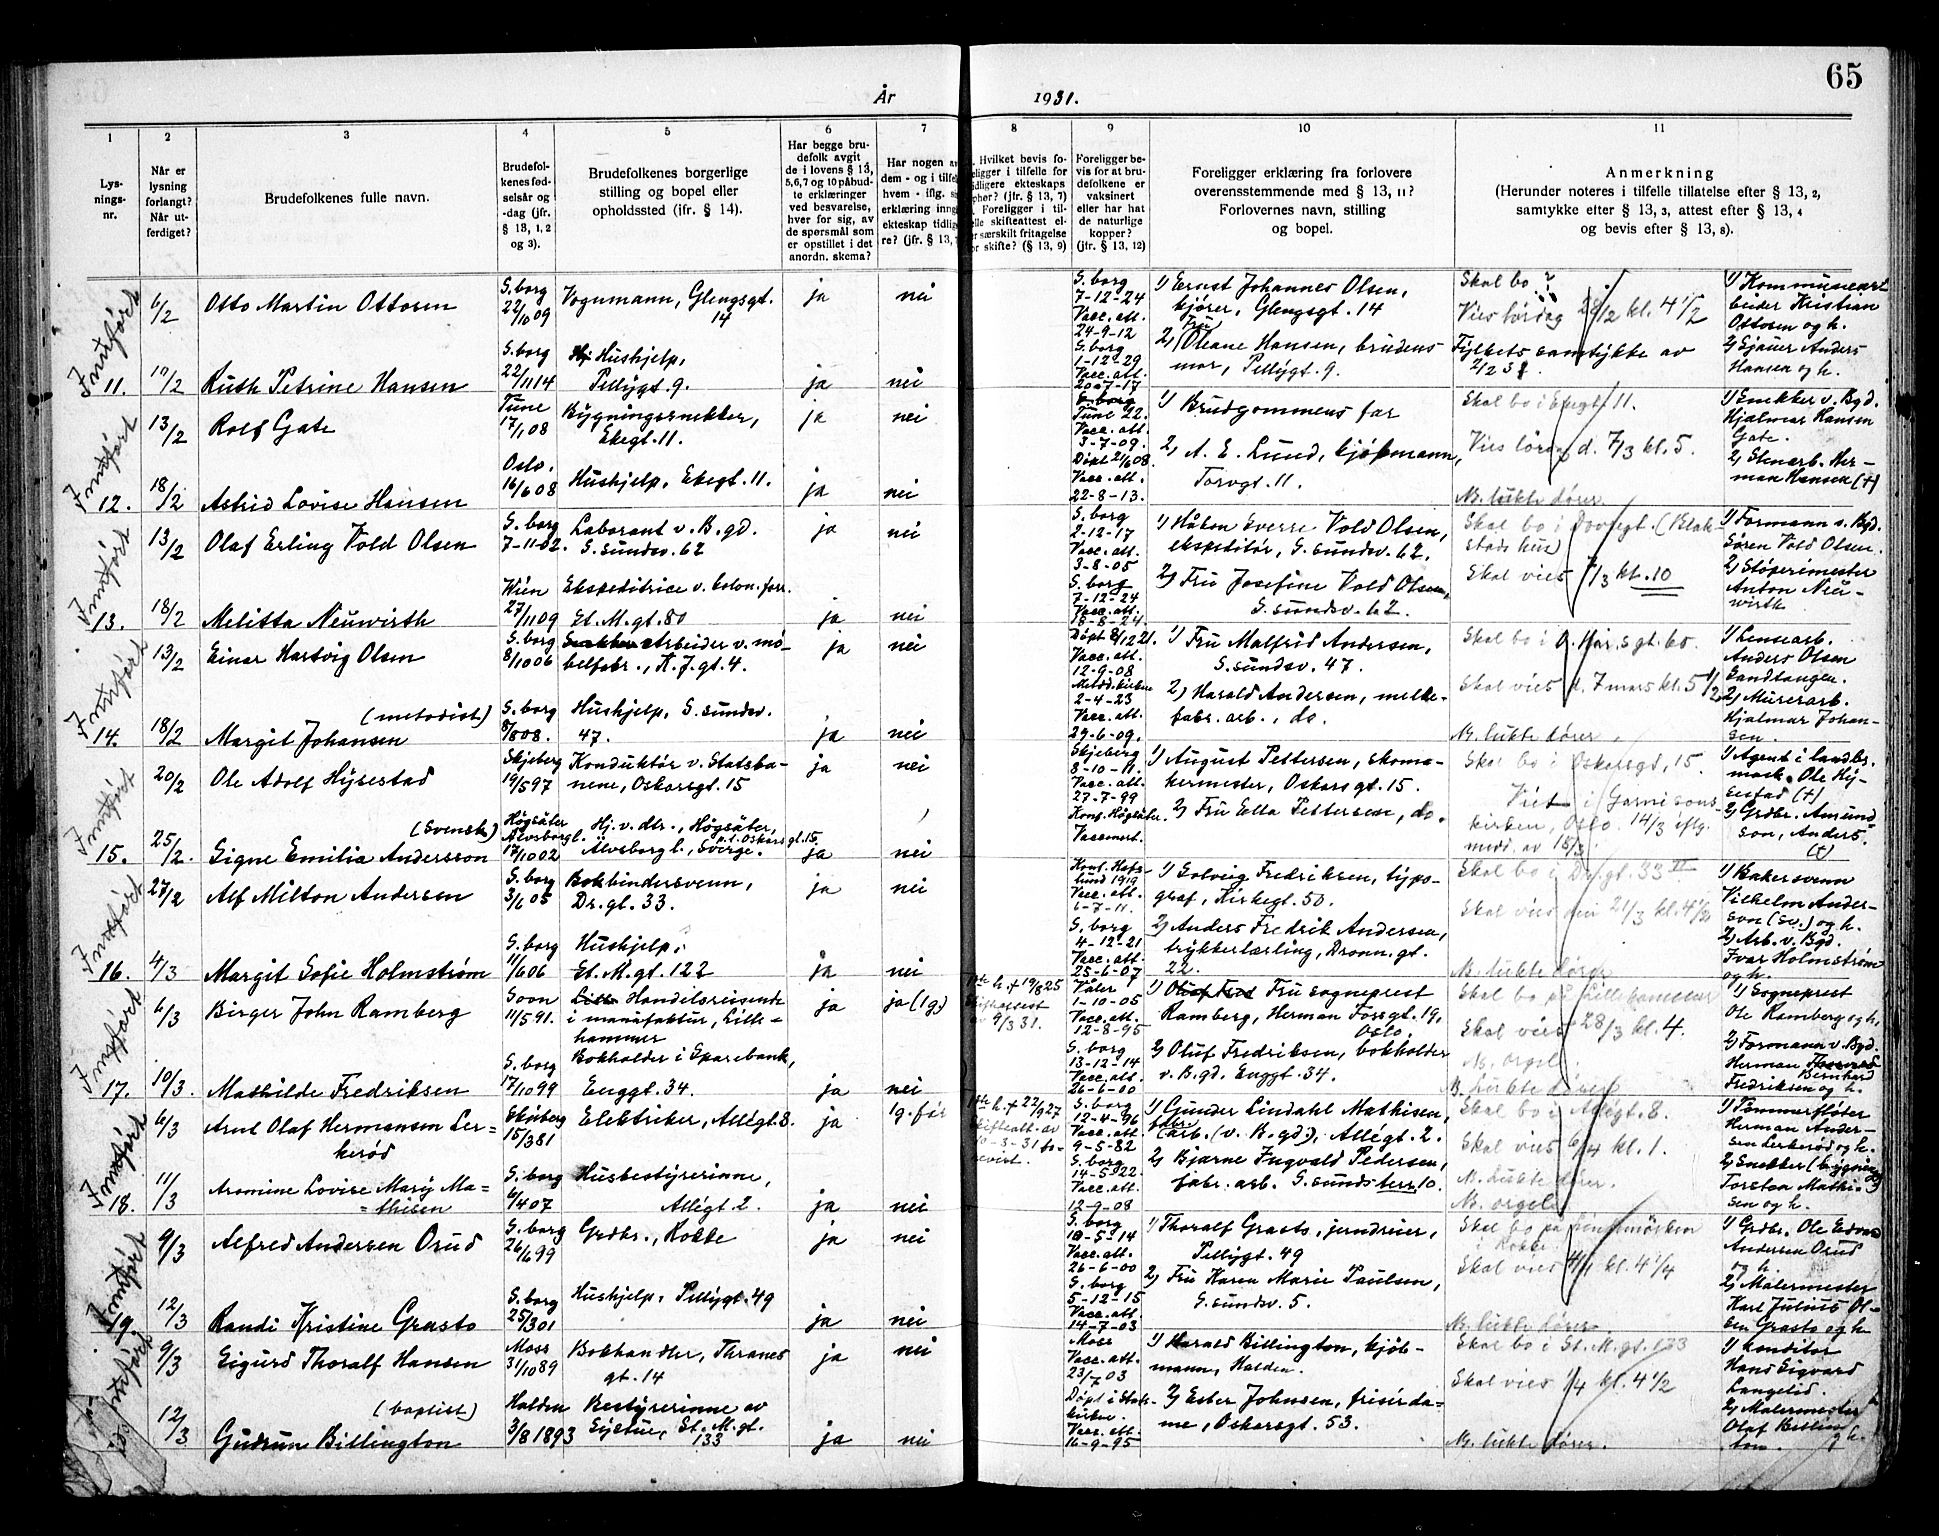 65
År 1931.
1 2 3 4 5 6 7 8 9 10 11
Lys-
nings-
nr.
Når er
lysning
forlangt?
Når ut-
ferdiget?
Brudefolkenes fulle navn.
Brudefol-
kenes fød-
selsår og
-dag (jfr.
§ 13, 1, 2
og 3).
Brudefolkenes borgerlige
stilling og bopel eller
opholdssted (ifr. § 14).
Har begge bru-
defolk avgit
de i lovens § 13,
5,6,7 og 10 påbud-
te erklæringer
ved besvarelse,
hver for sig, av
de spørsmål som
er opstillet i det
anordn. skema?
Har nogen av
dem - og i tilfelle
hvem - iflg. si
erklæring inng
ekteskap tidlig
re? (jfr. § 13,
Hvilket bevis fo-
religger i tilfelle for
tidligere ekteskaps
opher? (jfr. § 13, 7)
Foreligger i til-
felle skifteattest el-
er særskilt fritagelse
for skifte? (§ 13, 9)
Foreligger be-
vis for at bru-
defolkene er
vaksinert
eller har hat
de naturlige
kopper?
(jfr. § 13, 12)
Foreligger erklæring fra forlovere
overensstemmende med § 13, 11?
Forlovernes navn, stilling
og bopel.
Anmerkning
(Herunder noteres i tilfelle tillatelse efter § 13, 2,
samtykke efter § 13, 3, attest efter § 13, 4
og bevis efter § 13, 8).
Innført
11.
6/2 Otto Martin Ottosen
S.borg
22/10 09
Vognmann, Glengsgt.
14
ja nei
S.borg
7-12-24
Vacc.att.
24-9-12
1) Ernst Johannes Olsen,
kjører, Glengsgt. 14
Skal bo ?
Vies lørdag 28/2 kl. 4 1/2
1) Kommunearb
beider Kristian
Ottosen og h.
10/2 Ruth Petrine Hansen
S.borg
22/11 14
Hushjelp,
Pellygt. 9.
ja nei
S.borg
1-12-29
Vacc.att.
20-7-17
2) Fru Oleane Hansen, brudens
mor, Pellygt. 9.
Fylkets samtykke av
2) Gjauer Anders
Hansen og h.
Innført
12.
13/2 Rolf Gate
Tune
17/1 08
Bygningssnekker,
Ekegt. 11.
ja nei
Tune 22.
Vacc.att.
3-7-09.
1) Brudgommens far
Skal bo i Ekegt. 11.
Vies lørdag d. 7/3 kl. 5.
1) Snekker v. Bgd.
Hjalmar Hansen
Gate.
18/2 Astrid Lovise Hansen
Oslo.
16/6 08
Hushjelp, Ekegt. 11.
ja nei
Døpt 21/6 08
Vacc.att.
22-8-13.
2) A. E. Lund, kjøpmann,
Torvgt. 11.
N. lukte dører
2) Stenarb. Her-
man Hansen (+)
Innført
13.
13/2 Olaf Erling Vold Olsen
S.borg
7-11-02.
Laborant v. B.gd.
S.sundsv. 62
ja nei
S.borg
2-12-17
Vacc.att.
3-8-05
1) Håkon Sverre Vold Olsen,
ekspeditør, S.sundsv. 62.
Skal vies 7/3 kl. 10
1) Formann v. Bgd.
Søren Vold Olsen.
18/2 Melitta Neuwirth
Wien
27/11 09
Ekspeditrice v. kolon.forr.
St. M.gt. 80
ja nei
S.borg
7-12-24
Vacc.att.
18-8-24
2) Fru Josefine Vold Olsen,
S.sundsv. 62.
2) Støperimester
Anton Neu-
wirth
Innført
14.
13/2 Einar Hartvig Olsen
S.borg
8/10 06
Arbeider v. mø-
belfabr., K.J.gt. 4.
ja nei
Døpt 8/12 21.
Vacc.att.
12-9-08
1) Fru Malfrid Andersen,
S.sundsv. 47.
Skal bo i O. Hår.sgt. 60.
Skal vies d. 7 mars kl. 5 1/2
1) Lensearb.
Anders Olsen
Sandtangen.
18/2 Margit Johansen
(metodist)
S.borg
8/8 08.
Hushjelp, S.sundsv.
47.
ja nei
Metod.kirken
2-4-23
Vacc.att.
29-6-09.
2) Harald Andersen, melke-
fabr. arb., do.
N. lukte dører.
2) Murerarb.
Hjalmar Johan-
sen.
Innført
15.
20/2 Ole Adolf Hysestad
Skjeberg
19/5 97
Konduktør v. Statsba-
nene, Oskarsgt. 15
ja nei
Skjeberg
8-10-11.
Vacc.att.
27-7-99
1) August Pettersen, skoma-
kermester, Oskarsgt. 15.
Skal bo i Oskarsgt, 15.
Viet i Garnisons-
kirken, Oslo. 14/3 iflg.
medd. av 15/3.
1) Agent i landbr.
mask. Ole Hy-
sestad (+)
25/2. Signe Emilia Andersson
(Svensk)
Högsäter
Älvsborg l.
17/10 02
Hj. v. dtr., Högsäter,
Älvsborg l., Sverge. p.t. Oskarsgt. 15.
ja nei
Konf. Högsäter.
Vaccinert.
2) Fru Ella Pettersen, do.
2) Grdbr. Amund
son, Anders
(+)
Innført
16.
27/2 Alf Milton Andersen
S.borg
3/6 05
Bokbindersvenn,
Dr.gt. 33.
ja nei
Konf. Hafs-
lund 1919
Vacc.att.
6-7-11.
1) Solveig Fredriksen, typo-
graf, Kirkegt. 50.
Skal bo i Dr.gt. 33 II
Skal vies den 21/3 kl. 4 1/2
1) Bakersvenn
Vilhelm Ander-
son (sv.) og h.
4/3 Margit Sofie Holmstrøm
S.borg
11/6 06
Hushjelp,
St. M.gt. 122
ja nei
S.borg
4-12-21
Vacc.att.
25-6-07
2) Anders Fredrik Andersen,
trykkerlærling, Dronn.gt.
22.
N. lukte dører
2) Arb. v. Bgd.
Ivar Holmstrøm
og h.
Innført
17.
6/3 Birger John Ramberg
Soon
11/5 91.
Handelsreisende
i manufaktur, Lille-
hammer
ja ja (1 g.)
1ste h. + 19/8 25
Skifteattest
av 9/3 31.
Våler
1-10-05
Vacc.att.
12-8-95
1) Fru sogneprest
Ramberg, Herman Fossgt. 19,
Oslo.
Skal bo på Lillehammer
Skal vies 28/3 kl. 4.
N. orgel
1) Sogneprest
Ole Ramberg og h.
10/3. Mathilde Fredriksen
S.borg
17/10 99
Bokholder i Sparebank,
Enggt. 34.
ja nei
S.borg
13-12-14
Vacc.att.
26-6-00
2) Oluf Fredriksen, bokholder
v. B.gd. Enggt. 34.
N. lukte dører
2) Formann v. Bgd.
Herman
Bernhard
Fredriksen og h.
Innført
18.
6/3 Arnt Olaf Hermansen Ler-
kerød
Skjeberg
15/3 81
Elektriker, Allégt. 8.
ja 1 g. før
1ste h. + 22/9 27
Skifteatt. av
10-3-31 fo-
revist.
S.borg
12-4-96
Vacc.att.
9-5-82
1) Gunder Lindahl Mathisen,
fabr. arb. (v. B.gd.), Allégt. 2.
Skal bo i Allégt. 8.
Skal vies 6/4 kl. 1.
N. Lukte dører.
1) Tømmerfløter
Herman Ander-
sen Lerkerød og h.
11/3 Aromine Lovise Mary Ma-
thisen
S.borg
6/4 07
Husbestyrerinne,
Allégt. 2.
ja nei
S.borg
14-5-22
Vacc.att.
12-9-08
2) Bjarne Ingvald Pedersen,
fabr. arb. S.sundsterr. 10.
N. orgel
2) Snekker (bygnings)
Torston Mathi-
sen og h.
Innført
19.
9/3 Alfred Andersen Orud
S.borg
26/6 99
Grdbr., Rokke
ja nei
S.borg
10-5-14
Vacc.att.
26-6-00
1) Thoralf Grasto, jerndreier,
Pellygt. 49
i Rokke.
Skal vies 4/4 kl. 4 1/4
1) Grdbr. Ole Edvard
Andersen Orud
og h.
12/3 Randi Kristine Grasto
S.borg
25/3 01
Hushjelp, Pellygt. 49
ja nei
S.borg
5-12-15
Vacc.att.
14-7-03
2) Fru Karen Marie Paulsen,
S.sundsv. 5.
N. lukte dører
2) Malermester
Karl Julius Ol-
sen Grasto og h.
Innført
9/3 Sigurd Thoralf Hansen
Moss
31/10 89
Bokhandler, Thranes
gt. 14
ja nei
Moss
Vacc.att.
23/7 03
1) Harald Billington, kjøb-
mann, Halden.
Skal bo i St. M.gt. 133
Skal vies 4/4 kl. 4 1/2
1) Konditor
Hans Sigvard
Langelid.
12/3 Gudrun Billington
(baptist)
Halden
3/8 1893
Bestyrerinne av
St. M.gt.
133
ja nei
Døpt i Stats-
kirken.
Vacc.att.
16-9-95
2) Ester Johnsen, friserda-
me, Oskarsgt. 53.
N. lukte dører.
2) Malermester
Olaf Billing
ton. og h.